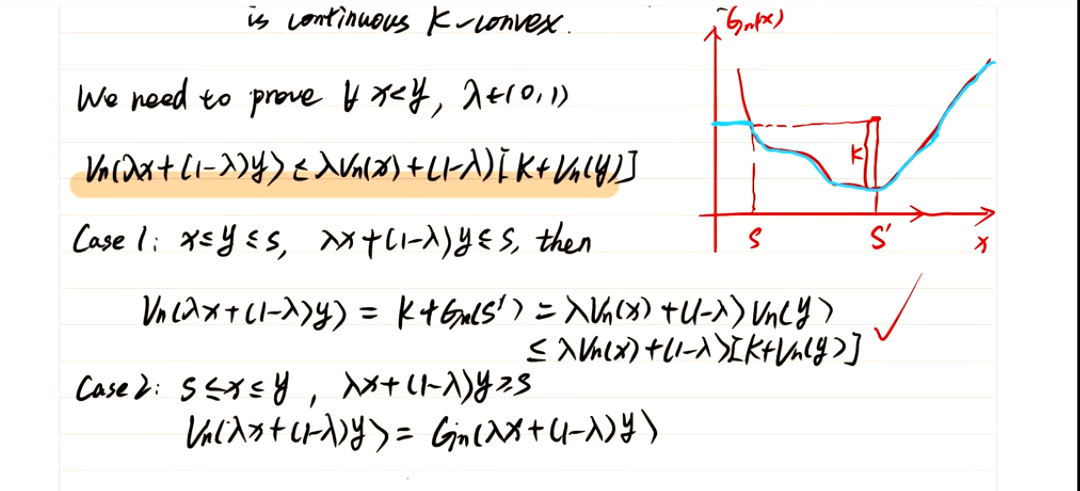 is continuous K-convex.
We need to prove ∀ x<y, λ∈(0,1)
Vn(λx+(1-λ)y) ≤ λVn(x)+(1-λ)[K+Vn(y)]
Case 1: x≤y≤s, λx+(1-λ)y≤s, then
Vn(λx+(1-λ)y) = K+Gn(s') = λVn(x)+(1-λ)Vn(y)
≤ λVn(x)+(1-λ)[K+Vn(y)]
Case 2: s≤x≤y, λx+(1-λ)y≥s
Vn(λx+(1-λ)y) = Gn(λx+(1-λ)y)
Gn(x)
K
s
S'
x